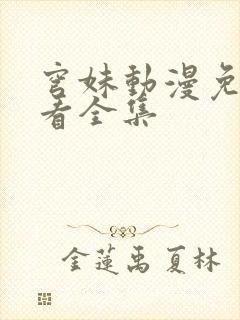 妹動漫免
看全集
金蓮禹夏林